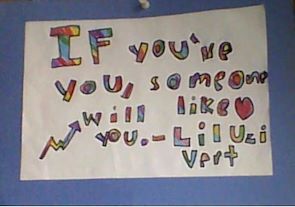 IF you've
you, someone
will like
you. - Lil uzi
vert